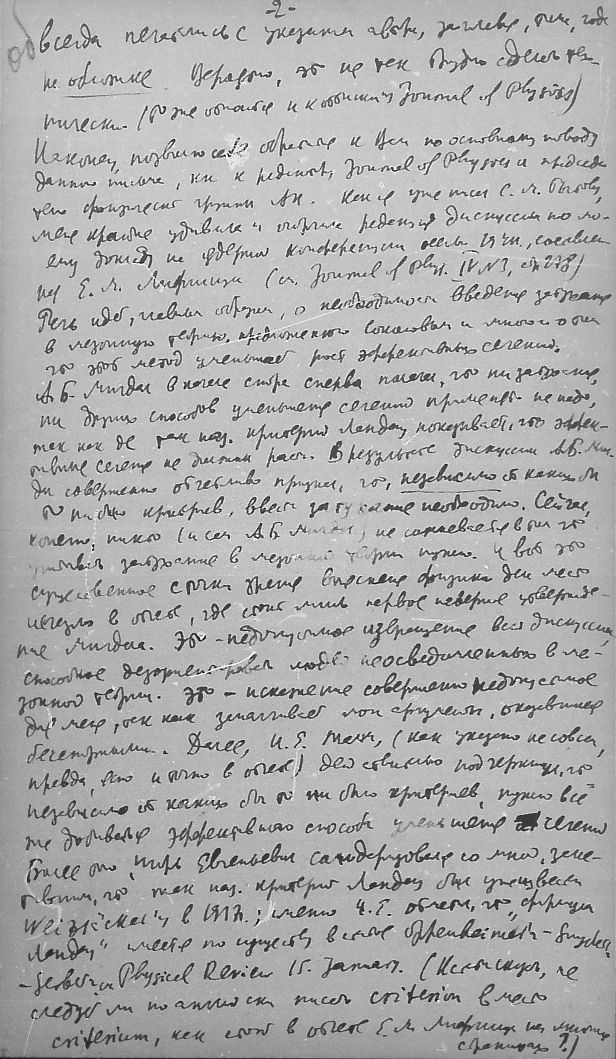 -2-
всегда печатались с указанием автора, заглавия, тома, года
на обложке. Вероятно, это не так трудно сделать тех-
нически. (То же относится и к обложкам Journal of Physics)
Наконец, позвольте себе обратиться к Вам по основному поводу
данного письма, как к редактору Journal of Physics и председа
телю физической группы АН. Как я уже писал С. И.
меня крайне удивила и огорчила редакция дискуссии по мо-
ему докладу на ядерной конференции осенью 1940, составлен
ная Е. М. Лифшицем (см. Journal of Phys. IV №3, стр 278)
Речь идет, главным образом, о необходимости введения затухания
в мезонную теорию, предложенного Соколовым и много о том
что этот метод уменьшает рост эффективных сечений.
А. Б. Мигдал в начале спора сперва полагал, что ни затухания,
ни других способов уменьшения сечения применять не надо,
так как де так наз. критерий Ландау показывает, что эффек-
тивные сечения не должны расти. В результате дискуссии А.Б. Миг
дал совершенно отчетливо признал, что, независимо от каких бы
то ни было критериев, ввести затухание необходимо. Сейчас,
конечно, никто (и сам А. Б. Мигдал) не сомневается в том что
учитывать затухание в мезонной теории нужно. И вот это
существенное с точки зрения выяснения физики дела место
исчезло в отчете, где стоит лишь первое неверное утвержде-
ние Мигдала. Это - недопустимое извращение всей дискуссии,
способное дезориентировать людей неосведомленных в ме-
зонной теории. Это - искажение совершенно недопустимое
для меня, так как замалчивает мои аргументы, оказавшиеся
бесспорными. Далее, И. Е. Тамм, (как указано не совсем,
правда, ясно и точно в отчете) действительно подчеркнул, что
независимо от каких бы то ни было критериев, нужно всё
же добиваться эффективного способа уменьшения сечения
Более того, Игорь Евгеньевич солидаризовался со мной, заме-
тившим, что так наз. критерий Ландау был уже известен
Weizsäcker'у в 1937.; именно И. Е. отметил, что „формула
Ландау" имеется по существу в статье Oppenheimer'a - Snyder
- Serber'a в Physical Review 15. January. (Кстати сказать, не
следует ли по английски писать criterion вместо
criterium, как стоит в отчете Е. М. Лифшица на многих
страницах ?)